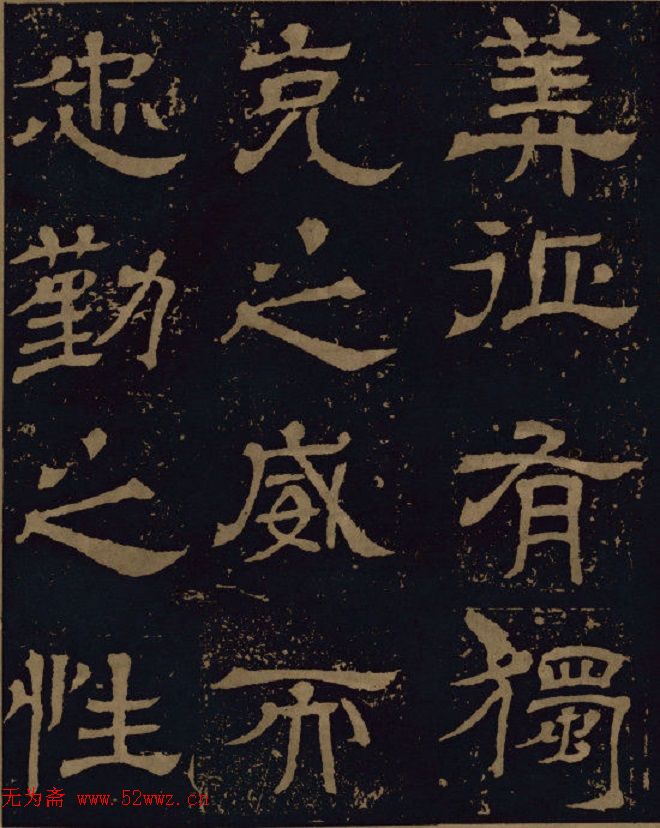 征有獨
克之威而
忠勤之性
无为斋 www.52wwz.cn